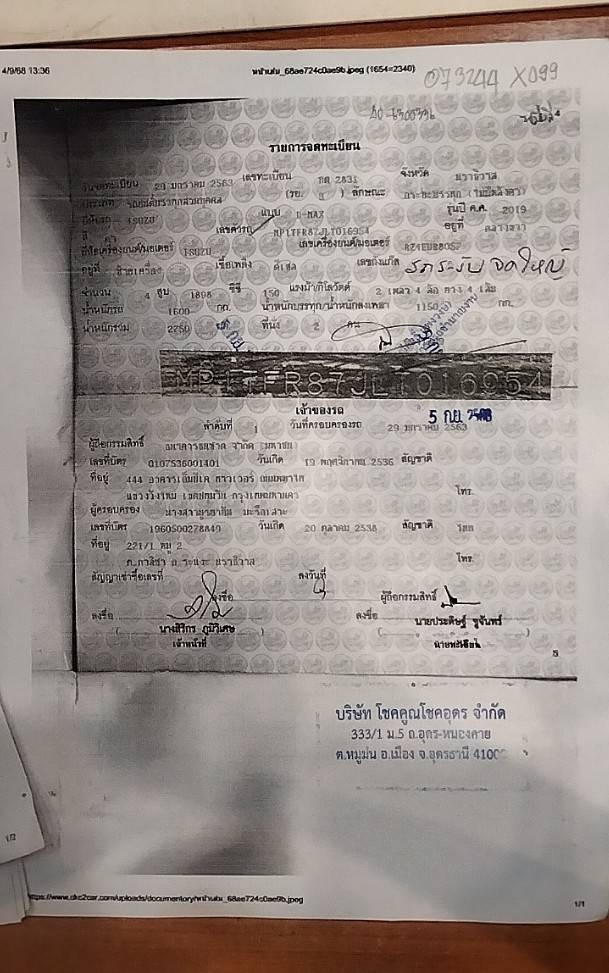 4/9/68 13:36
หน้าเล่ม_68ae724c0ae9b.jpeg (1654×2340)
073244 X099
รายการจดทะเบียน
วันจดทะเบียน 29 มกราคม 2563 เลขทะเบียน กต 2831 จังหวัด นราธิวาส
ประเภท รถยนต์บรรทุกส่วนบุคคล (รย. 3 ) ลักษณะ กระบะบรรทุก (ไม่มีหลังคา)
ยี่ห้อรถ ISUZU แบบ D-MAX รุ่นปี ค.ศ. 2019
สี เลขตัวรถ MP1TFR87JLT016954 อยู่ที่
ยี่ห้อเครื่องยนต์/มอเตอร์ ISUZU เลขเครื่องยนต์/มอเตอร์
อยู่ที่ เชื้อเพลิง ดีเซล เลขถังแก๊ส
รถระงับ จดใหญ่
จำนวน 4 สูบ 1898 ซีซี 150 แรงม้า/กิโลวัตต์ 2 เพลา 4 ล้อ ยาง 4 เส้น
น้ำหนักรถ 1600 กก. น้ำหนักบรรทุก/น้ำหนักลงเพลา 1150 กก.
น้ำหนักรวม 2750 ที่นั่ง 2 คน
MP1TFR87JLT016954
เจ้าของรถ
5 ก.ย. 2568
ลำดับที่ 1 วันที่ครอบครองรถ 29 มกราคม 2563
ผู้ถือกรรมสิทธิ์ ธนาคารธนชาต จำกัด (มหาชน)
เลขที่บัตร 0107536001401 วันเกิด 19 พฤศจิกายน 2536 สัญชาติ
ที่อยู่ 444 อาคารเอ็มบีเค ทาวเวอร์ ถนนพญาไท
แขวงวังใหม่ เขตปทุมวัน กรุงเทพมหานคร โทร.
ผู้ครอบครอง
เลขที่บัตร 1960500278840 วันเกิด 20 ตุลาคม 2538 สัญชาติ ไทย
ที่อยู่ 221/1 หมู่ 2
ต.กาลิซา อ.ระแงะ นราธิวาส โทร.
สัญญาเช่าซื้อเลขที่ ลงวันที่ ผู้ถือกรรมสิทธิ์
ลงชื่อ ลงชื่อ
นางสิริกร ภูมิวิเศษ นายประดิษฐ์ ชูจันทร์
เจ้าหน้าที่ นายทะเบียน
5
บริษัท โชคคูณโชคอุดร จำกัด
333/1 ม.5 ถ.อุดร-หนองคาย
ต.หมูม่น อ.เมือง จ.อุดรธานี 41000
1/2
https://www.ckc2car.com/uploads/documentory/หน้าเล่ม_68ae724c0ae9b.jpeg
1/1